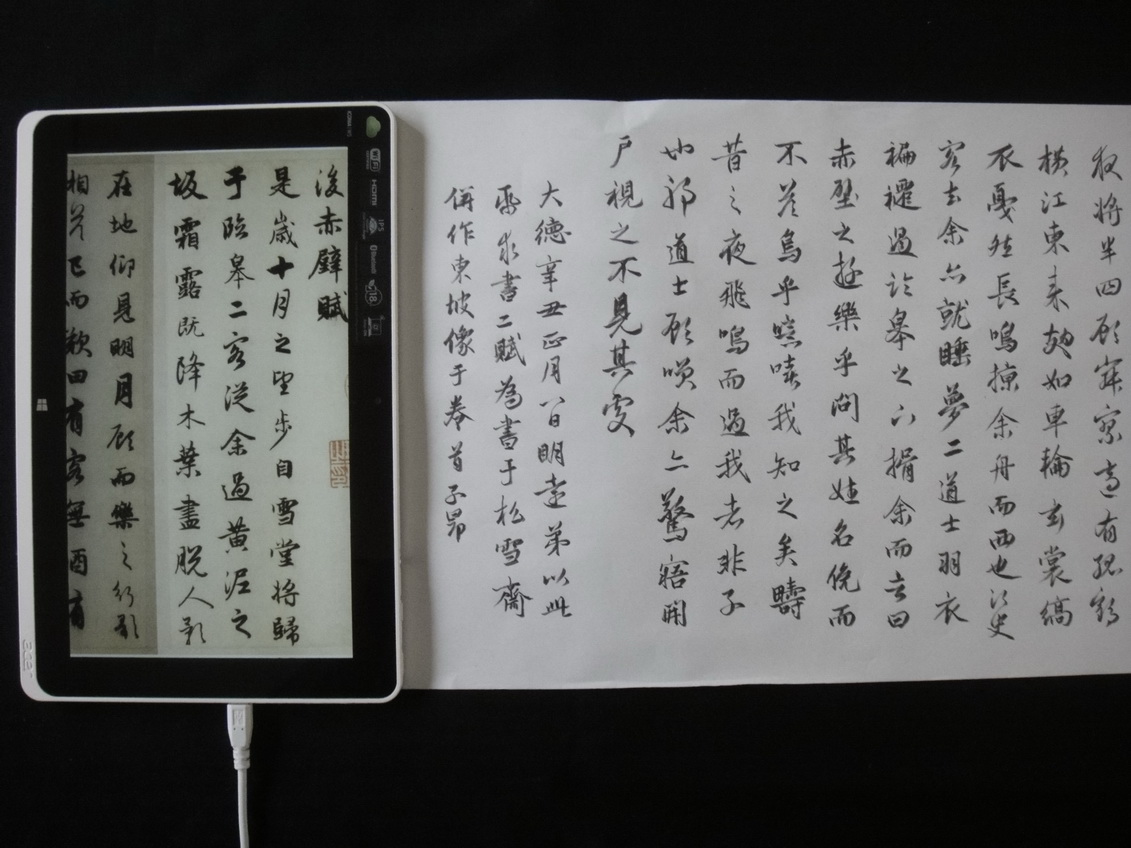 夜將半四顧寂寥適有孤鶴
橫江東来翅如車輪玄裳縞
衣戛然長鳴掠余舟而西也須臾
客去余亦就睡夢二道士羽衣
褊襹過臨皋之下揖余而言曰
赤壁之遊樂乎問其姓名俛而
不答烏乎噫嘻我知之矣疇
昔之夜飛鳴而過我者非子
也耶道士顧笑余亦驚寤開
户視之不見其處
大德辛丑正月八日明遠弟以此
帋求書二賦為書于松雪齋
併作東坡像于卷首子昂
後赤壁賦
是歲十月之望步自雪堂將歸
于臨皋二客從余過黄泥之
坂霜露既降木葉盡脱人影
在地仰見明月顧而樂之行歌
相答已而歎曰有客無酒有
WiFi
HDMI
IPS
Bluetooth
acer